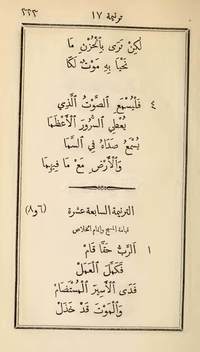 ترنيمة ١٧ ٢٢٣
لٰكِنْ تَرَى بِٱلْحُزْنِ مَا
نَحْيَا بِهِ مَوْتٌ لَنَا
٤ فَلْيُسْمَعِ ٱلصَّوْتُ ٱلَّذِي
يُعْطِي ٱلسُّرُورَ ٱلْأَعْظَمَا
يُسْمَعُ صَدَاهُ فِي ٱلسَّمَا
وَٱلْأَرْضِ مَعْ مَا فِيهِمَا
الترنيمة السابعة عشرة (٦و٨)
قيامة المسيح واتمام الخلاص
١ اَلرَّبُّ حَقًّا قَامْ
فَكَمَّلَ ٱلْعَمَلْ
فَدَى ٱلْأَسِيرَ ٱلْمُسْتَضَامْ
وَٱلْمَوْتَ قَدْ خَذَلْ